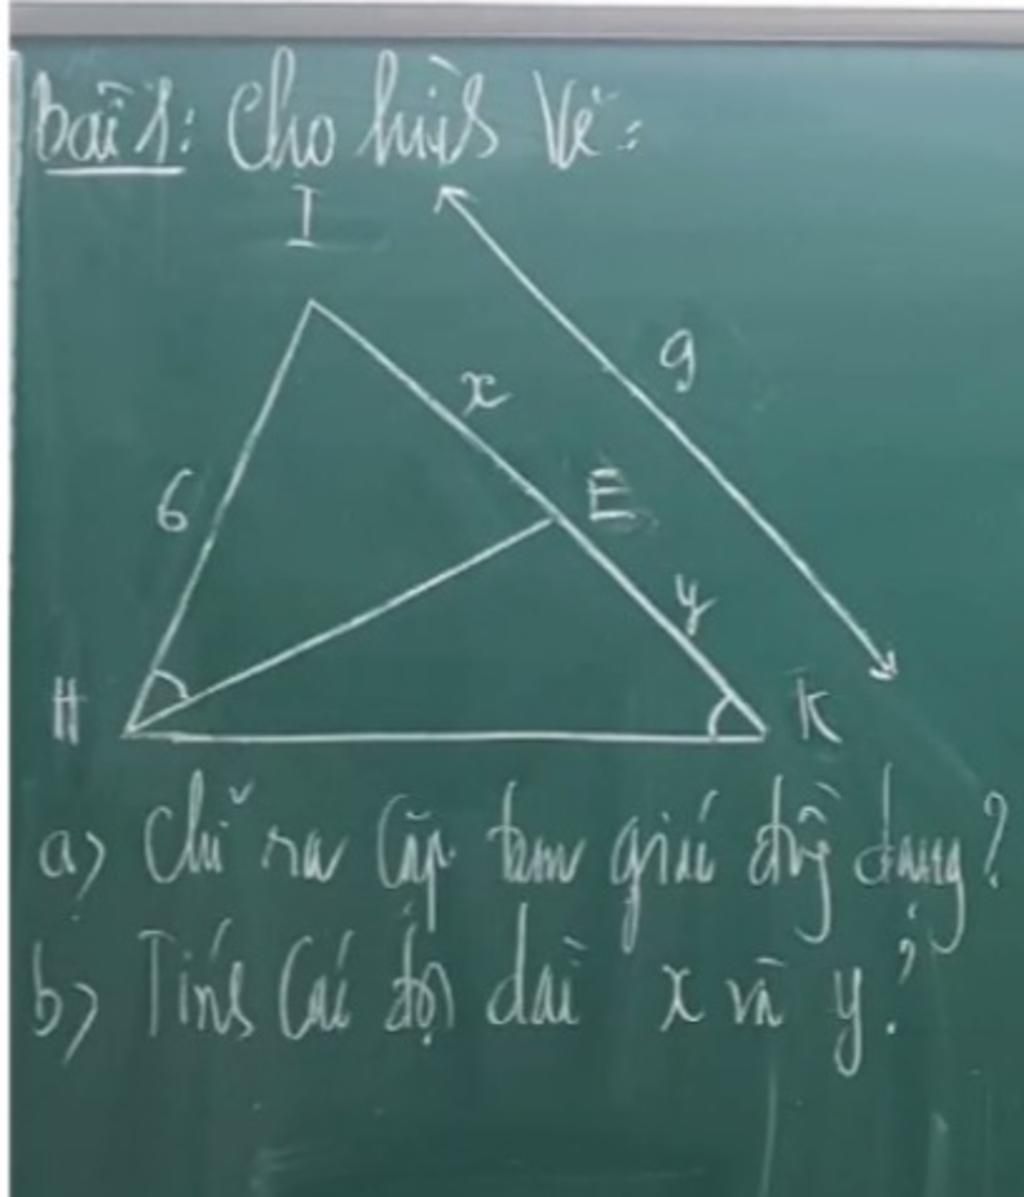 bài 1: Cho hình vẽ:
I
9
x
6
E
y
H
K
a) Chỉ ra Cặp tam giác đồng dạng?
b) Tính Các độ dài x và y?